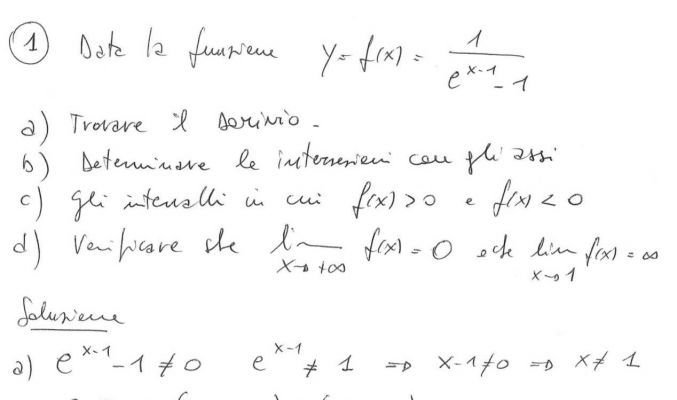 1 Data la funzione y = f(x) = 1 / (e^(x-1) - 1)
a) Trovare il dominio.
b) Determinare le intersezioni con gli assi
c) gli intervalli in cui f(x) > 0 e f(x) < 0
d) Verificare che lim x→+∞ f(x) = 0 e che lim x→1 f(x) = ∞
Soluzione
a) e^(x-1) - 1 ≠ 0 e^(x-1) ≠ 1 ⇒ x-1≠0 ⇒ x ≠ 1